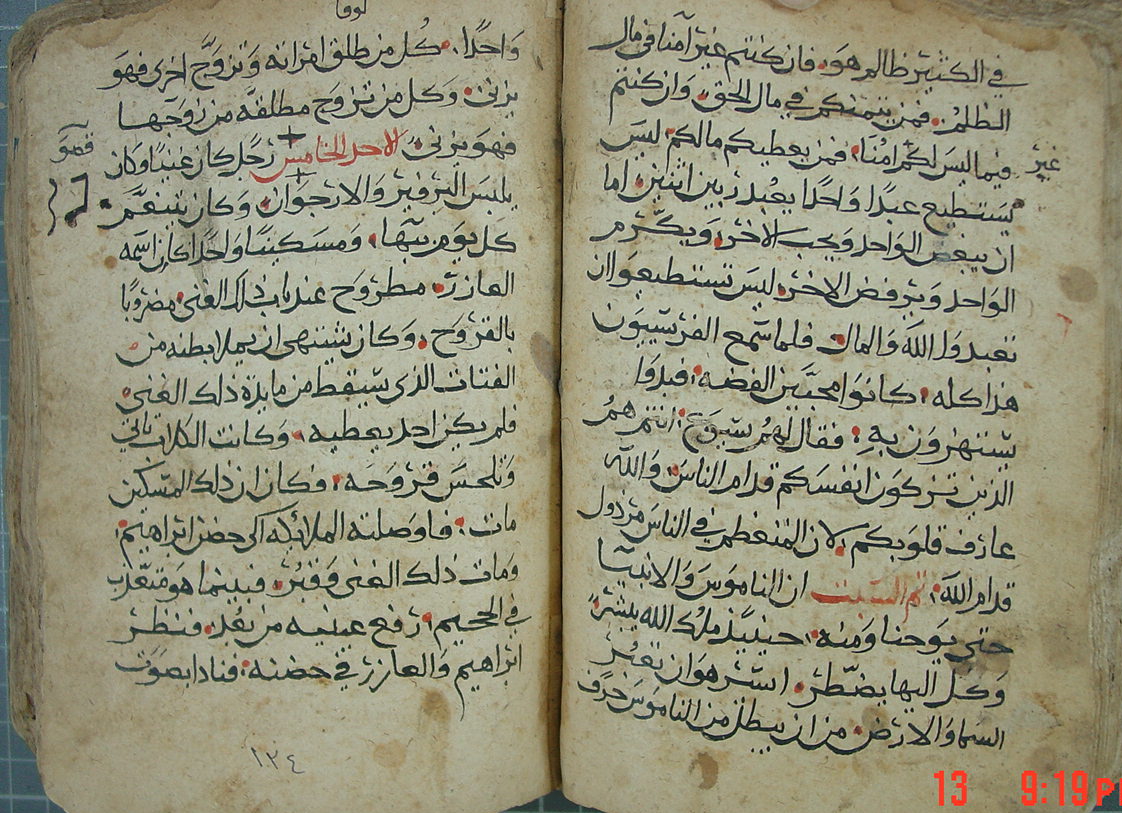 في الكثير ظالم هو. فان كنتم غير آمنا في مال
الظلم. فمن يمنكم في مال الحق. وان كنتم
فيما ليس لكم امنا. فمن يعطيكم مالكم ليس
غير
يستطيع عبدا واحدا يعبد ربين اثنين. اما
ان يبغض الواحد ويحب الاخر. ويكرم
الواحد ويرفض الاخر. ليس تستطيعوا ان
تعبدوا الله والمال. فلما سمع الفريسيون
هذا كله. كانوا محبين الفضه. فبدوا
يستهزون به. فقال لهم يسوع. انتم هم
الذين تزكون انفسكم قدام الناس. والله
عارف قلوبكم. لان المتعظم في الناس مرذول
قدام الله. تم السبت ان الناموس والانبيا
حتى يوحنا ومنه. حينيذ ملك الله يبشر.
وكل اليها يضطر. ايسر هو ان تعبر
السما والارض. من ان يبطل من الناموس حرف
لوقا
واحدا. كل من طلق امراته وتزوج اخرى فهو
يزني. وكل من تزوج مطلقه من زوجها
فهو يزني. الاحد الخامس رجل كان غنيا وكان
يلبس البرفير والارجوان. وكان يتنعم
كل يوم بيبها. ومسكينا واحدا كان اسمه
العازر. مطروح عند باب ذلك الغني. مضروبا
بالقروح. وكان يشتهي ان يملا بطنه من
الفتات الذي يسقط من مايدة ذلك الغني
فلم يكن احد يعطيه. وكانت الكلاب تاتي
وتلحس قروحه. فكان ان ذلك المسكين
مات. فاوصلته الملائكه الى حضن ابراهيم.
ومات ذلك الغني وقبر. فبينما هو متعذب
في الجحيم. رفع عينيه من بعد. فنظر
ابراهيم والعازر في حضنه. فنادا بصوت
١٣٤
13 9:19 P